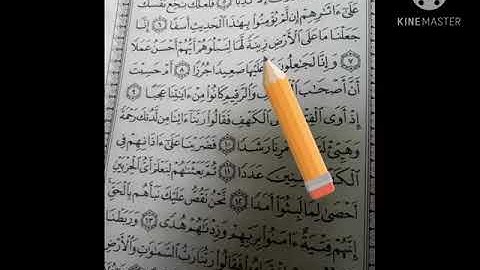 نَّفْسَكَ
عَلَىٰٓ ءَاثَٰرِهِمْ إِن لَّمْ يُؤْمِنُوا۟ بِهَٰذَا ٱلْحَدِيثِ أَسَفًا ٦
جَعَلْنَا مَا عَلَى ٱلْأَرْضِ زِينَةً لَّهَا لِنَبْلُوَهُمْ أَيُّهُمْ أَحْسَنُ عَمَلًا
٧ وَإِنَّا لَجَٰعِلُونَ عَلَيْهَا صَعِيدًا جُرُزًا ٨ أَمْ حَسِبْتَ
أَنَّ أَصْحَٰبَ وَٱلرَّقِيمِ كَانُوا۟ مِنْ ءَايَٰتِنَا عَجَبًا ٩
إِذْ أَوَى ٱلْكَهْفِ فَقَالُوا۟ رَبَّنَآ ءَاتِنَا مِن لَّدُنكَ رَحْمَةً
وَهَيِّئْ رَشَدًا ١٠ فَضَرَبْنَا عَلَىٰٓ ءَاذَانِهِمْ فِى
سِنِينَ عَدَدًا ١١ ثُمَّ بَعَثْنَٰهُمْ لِنَعْلَمَ أَىُّ ٱلْحِزْبَيْنِ
أَحْصَىٰ لِمَا لَبِثُوٓا۟ أَمَدًا ١٢ نَّحْنُ نَقُصُّ عَلَيْكَ نَبَأَهُم بِٱلْحَقِّ
إِنَّهُمْ فِتْيَةٌ ءَامَنُوا۟ بِرَبِّهِمْ وَزِدْنَٰهُمْ هُدًى ١٣ وَرَبَطْنَا
فَقَالُوا۟ رَبُّنَا رَبُّ ٱلسَّمَٰوَٰتِ وَٱلْأَرْضِ
Made with
KINEMASTER